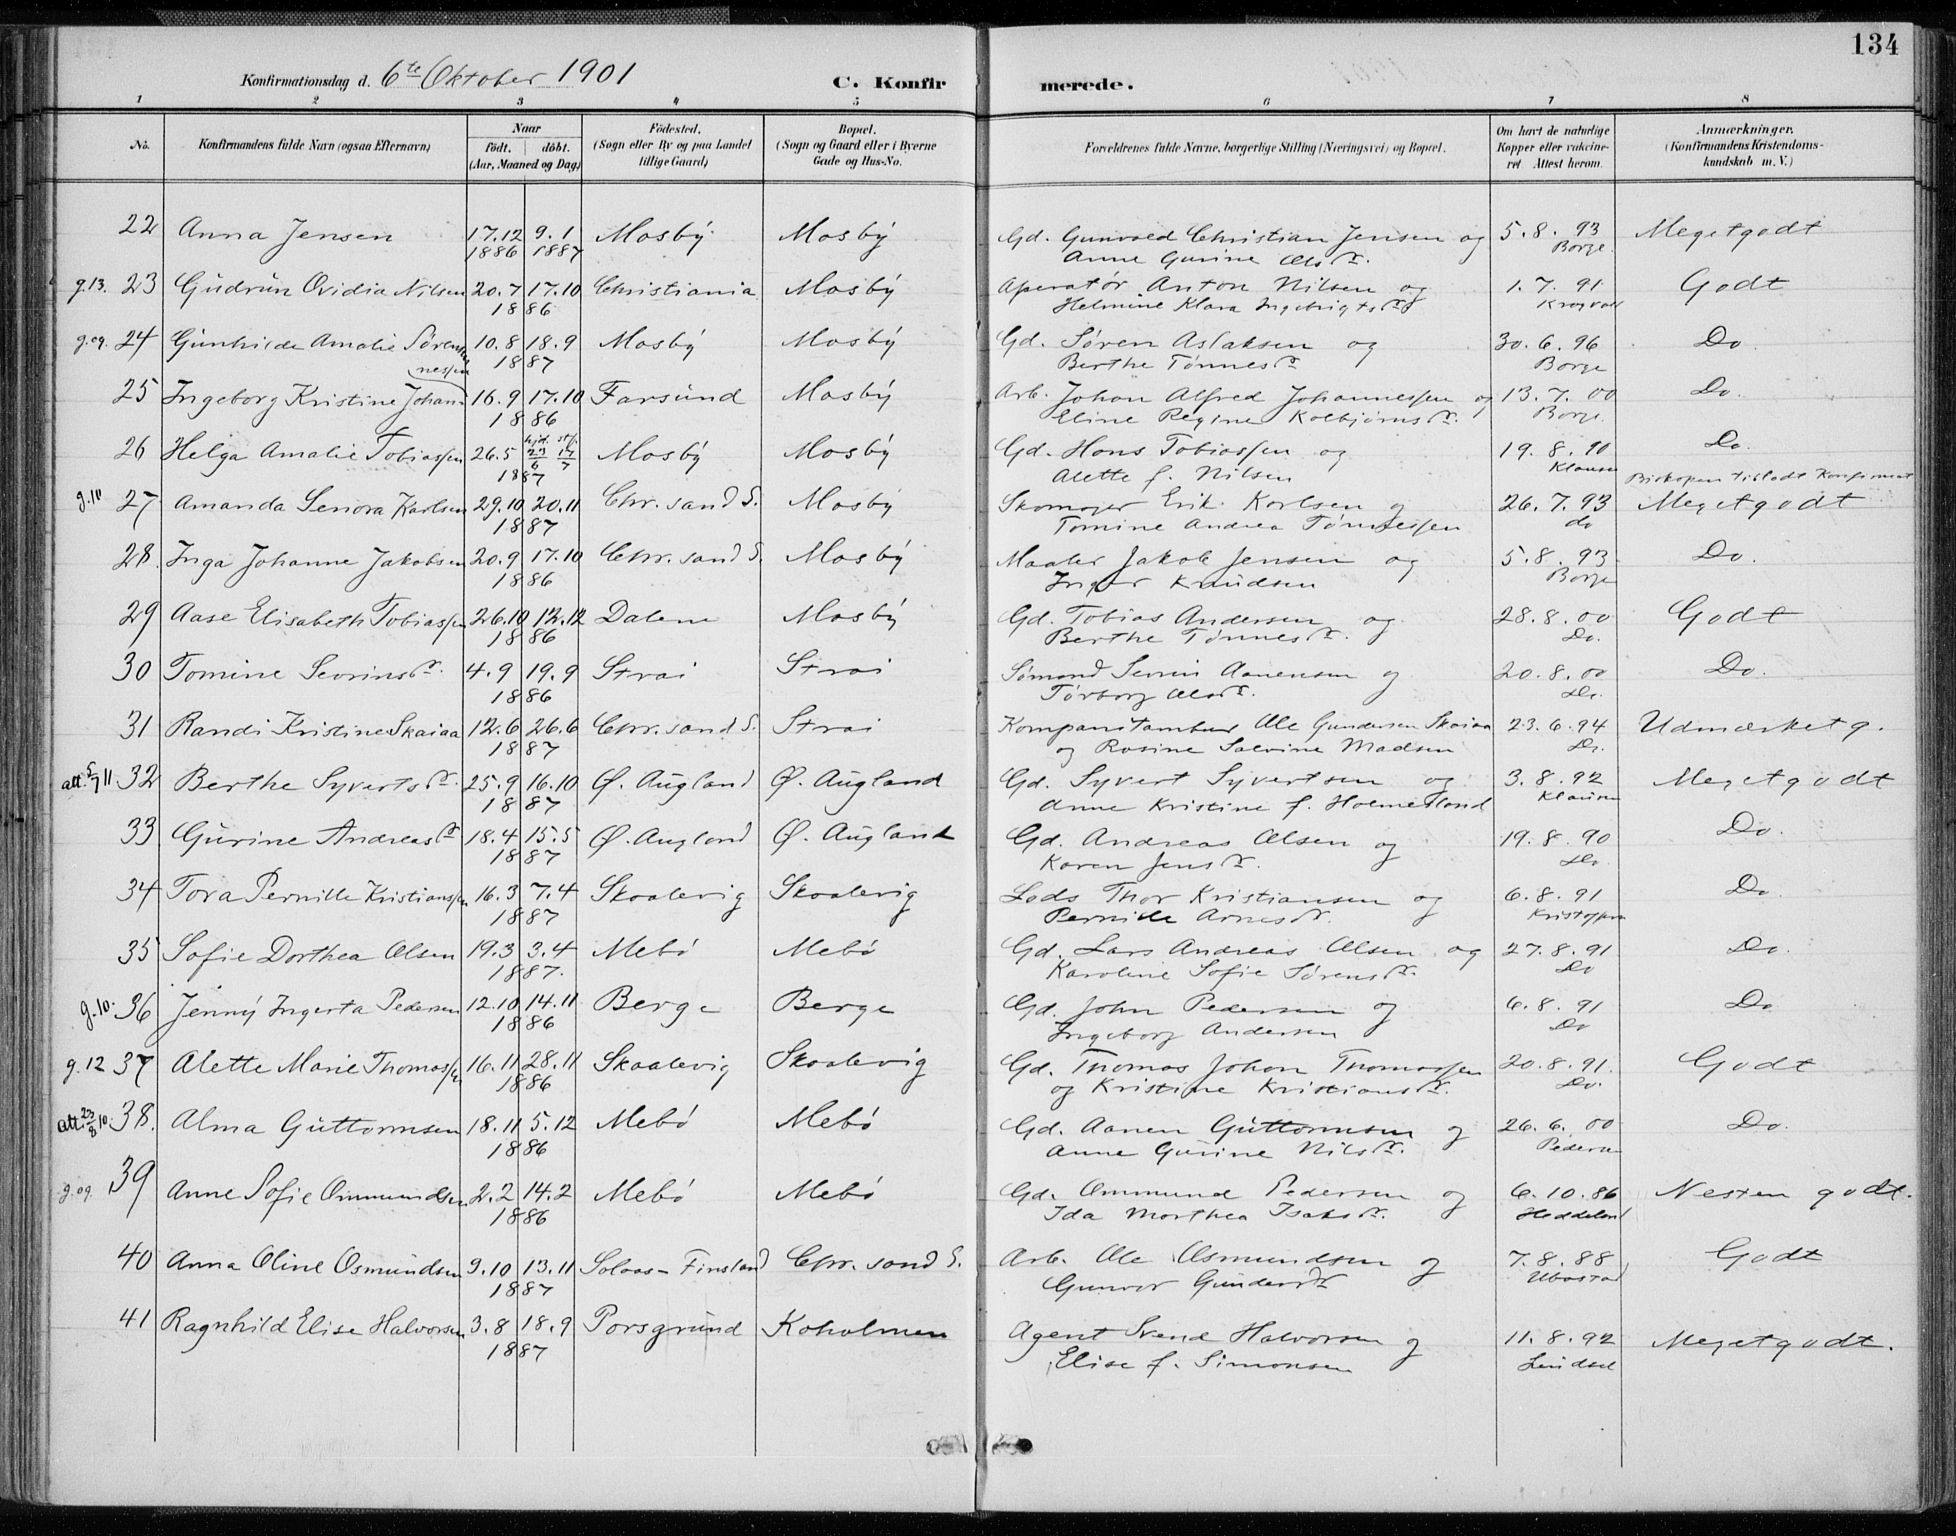 134
Konfirmationsdag d. 6te Oktober 1901
C. Konfirmerede.
1 2 3 4 5 6 7 8
No. Konfirmandens fulde Navn (ogsaa Efternavn) Naar født. døbt. (Aar, Maaned og Dag) Fødested. (Sogn eller By og paa Landet tillige Gaard) Bopæl. (Sogn og Gaard eller i Byerne Gade og Hus-No. Forældrenes fulde Navne, borgerlige Stilling (Næringsvei) og Bopæl. Om havt de naturlige Kopper eller vakcineret. Attest herom. Anmærkninger. (Konfirmandens Kristendomskundskab m. V.)
22 Anna Jensen 17.12 9.1 Mosby Mosby Gd. Gunvald Christian Jensen og 5.8.93 Megetgodt
1886 1887 Anne Gurine Olsd. Borge
g.13. 23 Gudrun Ovidia Nilsen 20.7 17.10 Christiania Mosby Operatør Anton Nilsen og 1.7.91 Godt
1886 Helmine Klara Ingebrigtsd.
g.09. 24 Gunhilde Amalie Sørensen 10.8 18.9 Mosby Mosby Gd. Søren Aslaksen og 30.6.96 Do
1887 Berthe Tønnesd. Borge
25 Ingeborg Kristine Johannessen 16.9 17.10 Farsund Mosby Arb. Johan Alfred Johannessen og 13.7.00 Do.
1886 Eline Regine Kolbjørnsd. Borge.
26 Helga Amalie Tobiassen 26.5 hjd. 23/6 stf. 17/7 Mosby Mosby Gd. Hans Tobiassen og 19.8.90 Do.
1887 Alette f. Nilsen Klausen Biskopen tilladt Konfirmeret
g.10 27 Amanda Senora Karlsen 29.10 20.11 Chr.sand S. Mosby Skomager Erik Karlsen og 26.7.93 Megetgodt
1887 Tomine Andrea Tønnessen do
28. Inga Johanne Jakobsen 20.9 17.10 Chr.sand S. Mosby Maaler Jakob Jensen og 5.8.93 Do.
1886 Inger Knudsen Borge
29 Aase Elisabeth Tobiassen 26.10 12.12 Dalene Mosby Gd. Tobias Andersen og 28.8.00 Godt
1886 Berthe Tønnesd. Do.
30 Tomine Sevrinsd. 4.9 19.9 Strai Strai Sømand Sevrin Aanensen og 20.8.00 Do.
1886 Torborg Olsd. Do.
31 Randi Kristine Skaiaa 12.6 26.6 Chr.sand S. Strai Kompanitambur Ole Gundersen Skaiaa 23.6.94 Udmærket g.
1887 og Rosine Salvine Madsen Do.
att. 5/7 11 32 Berthe Syvertsd. 25.9 16.10 Ø. Augland Ø. Augland Gd. Syvert Syvertsen og 3.8.92 Megetgodt
1887 Anne Kristine f. Holmesland Klausen
33 Gurine Andreasd. 18.4 15.5 Ø. Augland Ø. Augland Gd. Andreas Olsen og 19.8.90 Do.
1887 Karen Jensd. Do.
34 Tora Pernille Kristianssen 16.3 7.4 Skaalevig Skaalevig Lods Thor Kristiansen og 6.8.91 Do
1887 Pernille Arnesd.
35 Sofie Dorthea Olsen 19.3 3.4 Mebø Mebø Gd. Lars Andreas Olsen og 27.8.91 Do.
1887. Karoline Sofie Sørensd. Do
g.10. 36 Jenny Ingerta Pedersen 12.10 14.11 Berge Berge Gd. John Pedersen og 6.8.91 Do
1886 Ingeborg Andersen Do
g.12 37 Alette Marie Thomassen 16.11 28.11 Skaalevig Skaalevig Gd. Thomas Johan Thomassen 20.8.91. Godt
1886 og Kristine Kristiansd. Do.
att. 23/8 10. 38. Alma Guttormsen 18.11 5.12 Mebø Mebø Gd. Aanen Guttormsen og 26.6.00 Do.
1886 Anne Gurine Nilsd. Pedersen
g.09. 39 Anne Sofie Ommundsen 2.2 14.2 Mebø Mebø Gd. Ommund Pedersen og 6.10.86 Nesten godt.
1886 Ida Marthea Isaksd. Heddeland
40 Anna Oline Osmundsen 9.10 13.11 Solaas-Finsland Chr.sand S. Arb. Ole Osmundsen og 7.8.88 Godt
1887 Gunvor Gundersd. Ubostad
41 Ragnhild Elise Halvorsen 3.8 18.9 Porsgrund Koholmen Agent Svend Halvorsen og 11.8.92 Megetgodt.
1887 Elise f. Simonsen